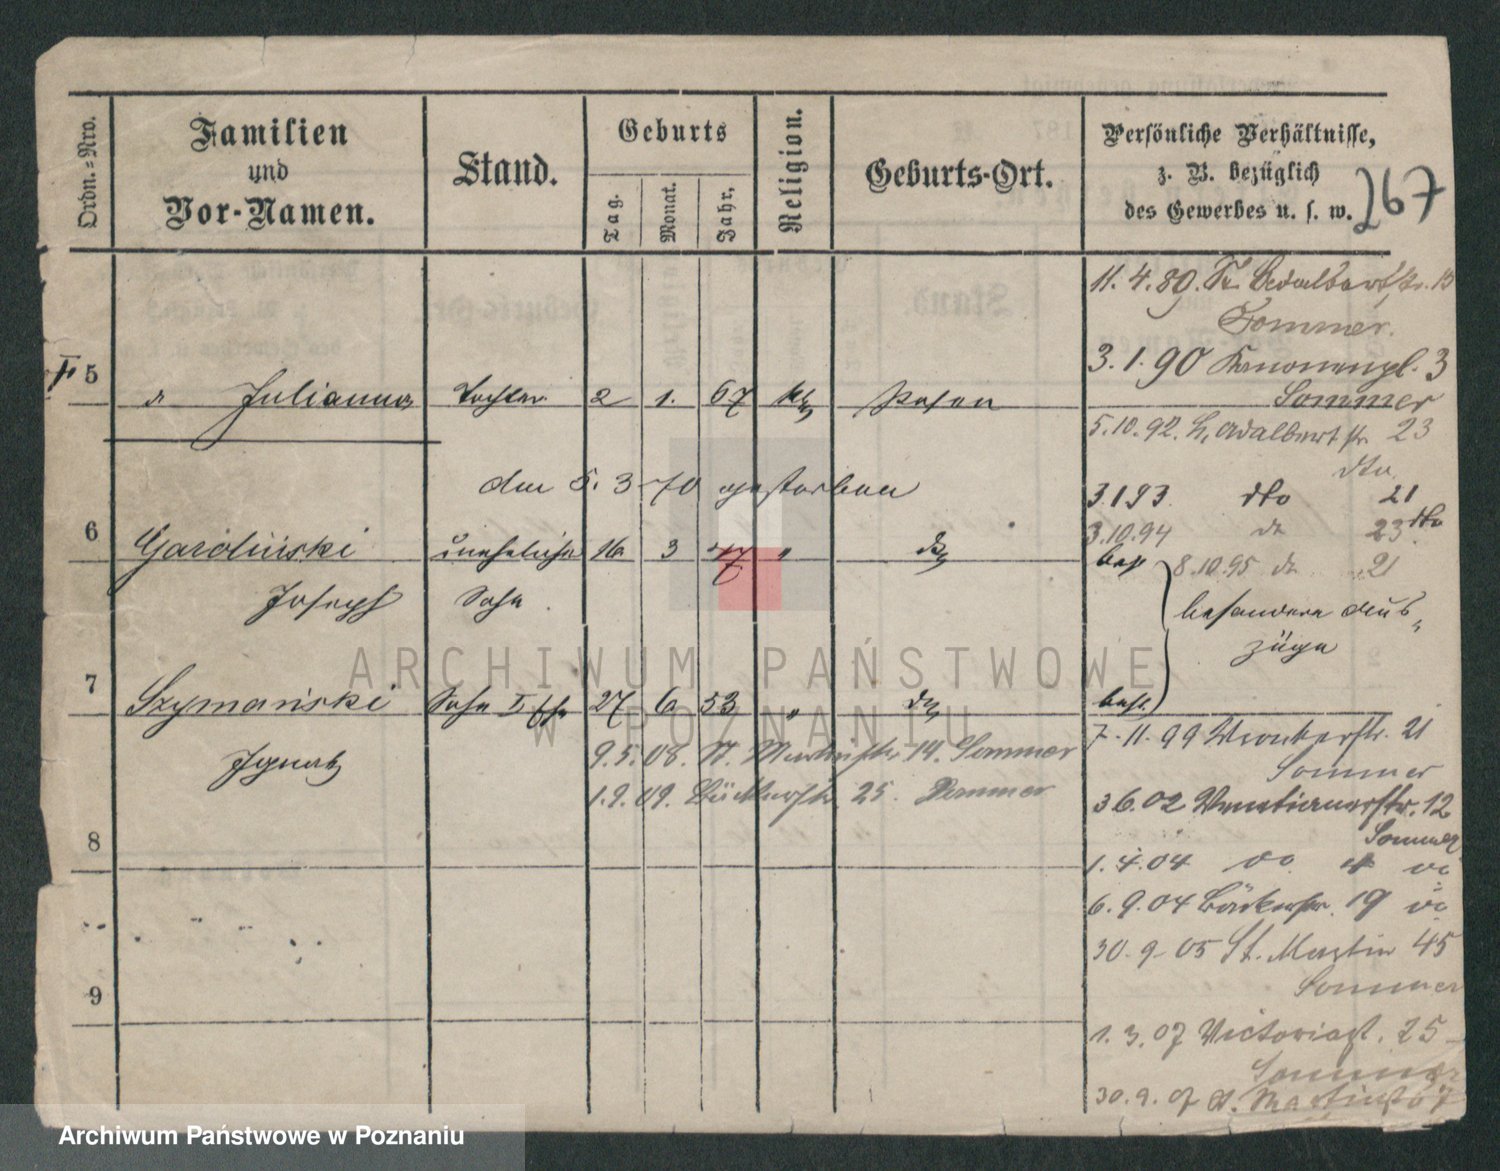 Ordn.-Nro.
Familien
und
Vor-Namen.
Stand.
Geburts
Tag.
Monat.
Jahr.
Religion.
Geburts-Ort.
Persönliche Verhältnisse,
z. B. bezüglich
des Gewerbes u. s. w.
267
11. 4. 80. Adalbertstr. 15
Sommer.
3. 1. 90 3
5 Julianna Tochter 2 1. 67 kth Posen
Sommer
5. 10. 92. Adalbertstr. 23
dto
den 5. 3. 70 gestorben
3 1 93 dto 21
3. 10. 94 do 23 dto
6 Garoliński uneheliche 16 3 47 " do
8. 10. 95 do 21
Joseph Sohn
besondere Aus-
züge
7 Szymański Sohn I Ehe 27 6 53 " do
Ignatz
7. 11. 99 Wronkerstr. 21
Sommer
9. 5. 08. St. Martinstr. 14. Sommer
1. 9. 09. Bäckerstr. 25. Sommer
3 6. 02 Venetianerstr. 12
Sommer
8
1. 4. 04 do 4 do
6. 9. 04 Bäckerstr. 19 do
30. 9. 05 St. Martin 45
Sommer
9
1. 3. 07 Victoriast. 25
Sommer
30. 9. 07 St. Martinst 67
ARCHIWUM PAŃSTWOWE
W POZNANIU
Archiwum Państwowe w Poznaniu